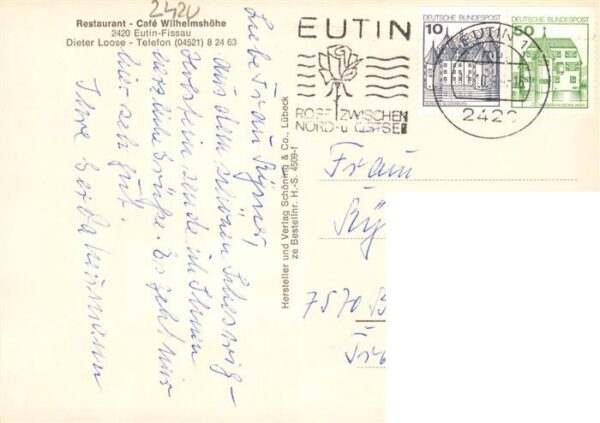 2420
Restaurant - Café Wilhelmshöhe
2420 Eutin-Fissau
Dieter Loose - Telefon (04521) 8 24 63
Liebe Frau
aus dem schönen Schleswig-
Holstein sende ich Ihnen
herzliche Grüße. Es geht mir
hier sehr gut.
Ihre
Hersteller und Verlag Schöning & Co., Lübeck
ze Bestellnr. H.-S. 4509-f
EUTIN
ROSE ZWISCHEN
NORD-u OSTSEE
DEUTSCHE BUNDESPOST
10
DEUTSCHE BUNDESPOST
50
EUTIN 1
2420
Frau
7570 B